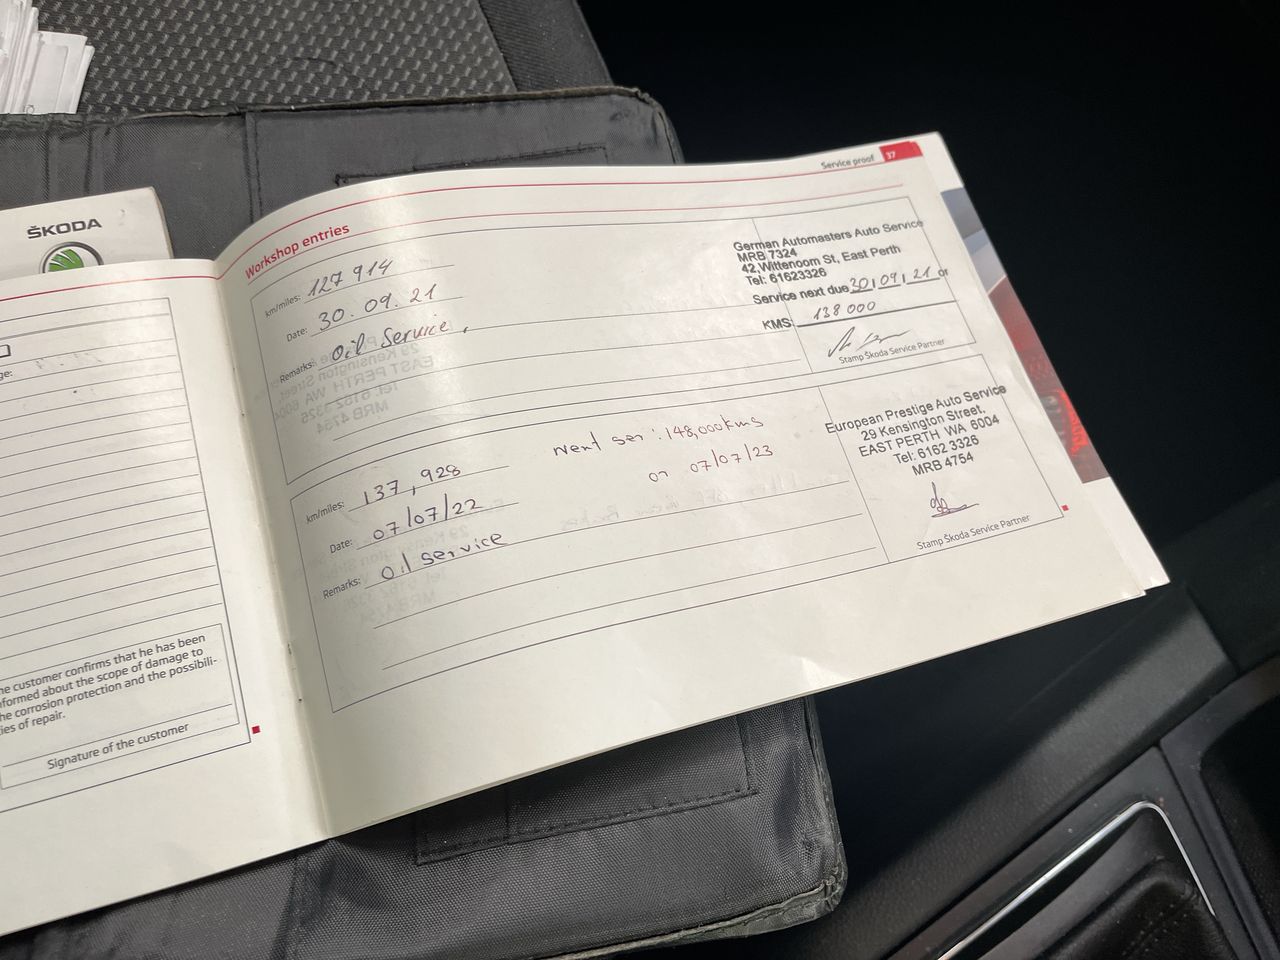 Service proof 37
ŠKODA
Workshop entries
km/miles: 127 914
Date: 30. 09. 21
Remarks: Oil Service.
German Automasters Auto Service
MRB 7324
42 Wittenoom St, East Perth
Tel: 61623326
Service next due 30, 09, 21 or
KMS: 138 000
Stamp Škoda Service Partner
km/miles: 137,928
Date: 07/07/22
Remarks: Oil service
Next ser: 148,000kms
or 07/07/23
European Prestige Auto Service
29 Kensington Street,
EAST PERTH WA 6004
Tel: 6162 3326
MRB 4754
Stamp Škoda Service Partner
ge:
he customer confirms that he has been
nformed about the scope of damage to
he corrosion protection and the possibili-
ies of repair.
Signature of the customer